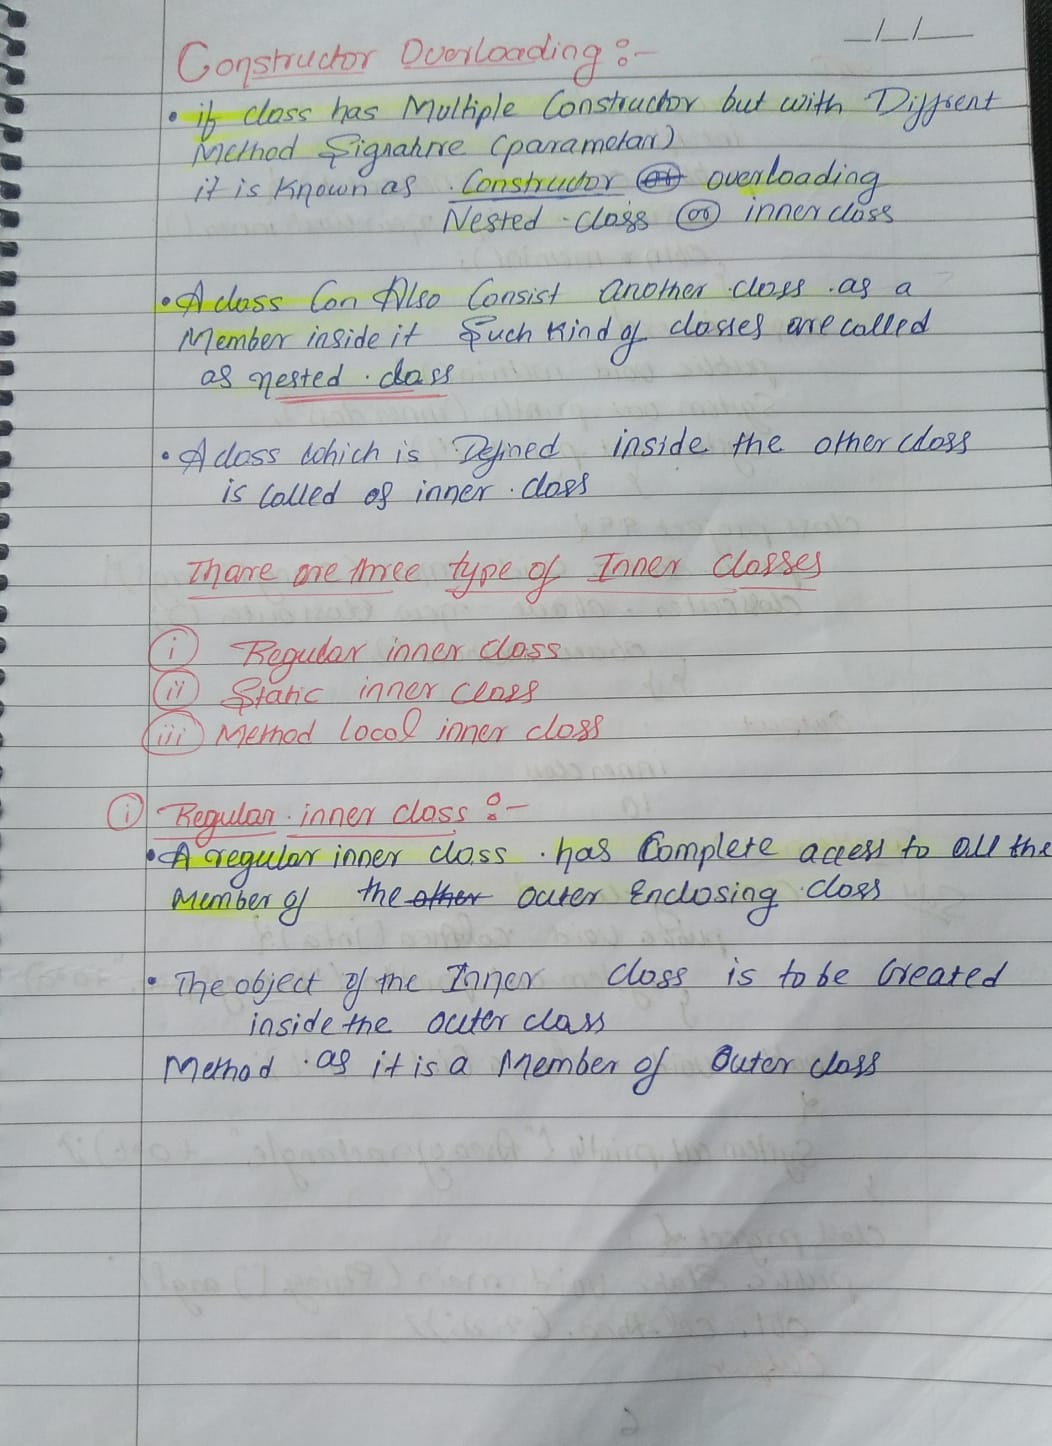 _/_/_
Constructor Overloading :-
• if class has Multiple Constructor but with Diffrent
Method Signature (parametar)
it is Known as . Constructor overloading
Nested - class (or) inner class
• A class Can Also Consist another class as a
Member inside it Such Kind of classes are called
as nested . class
• A class which is Defined inside the other class
is called as inner . class
Thare are three type of Inner Classes
(i) Regular inner class
(ii) Static inner class
(iii) Method Local inner class
(i) Regular inner class :-
• A regular inner class . has Complete access to all the
Member of the other outer Enclosing class
• The object of the Inner class is to be Created
inside the outer class
Method . as it is a Member of Outer class